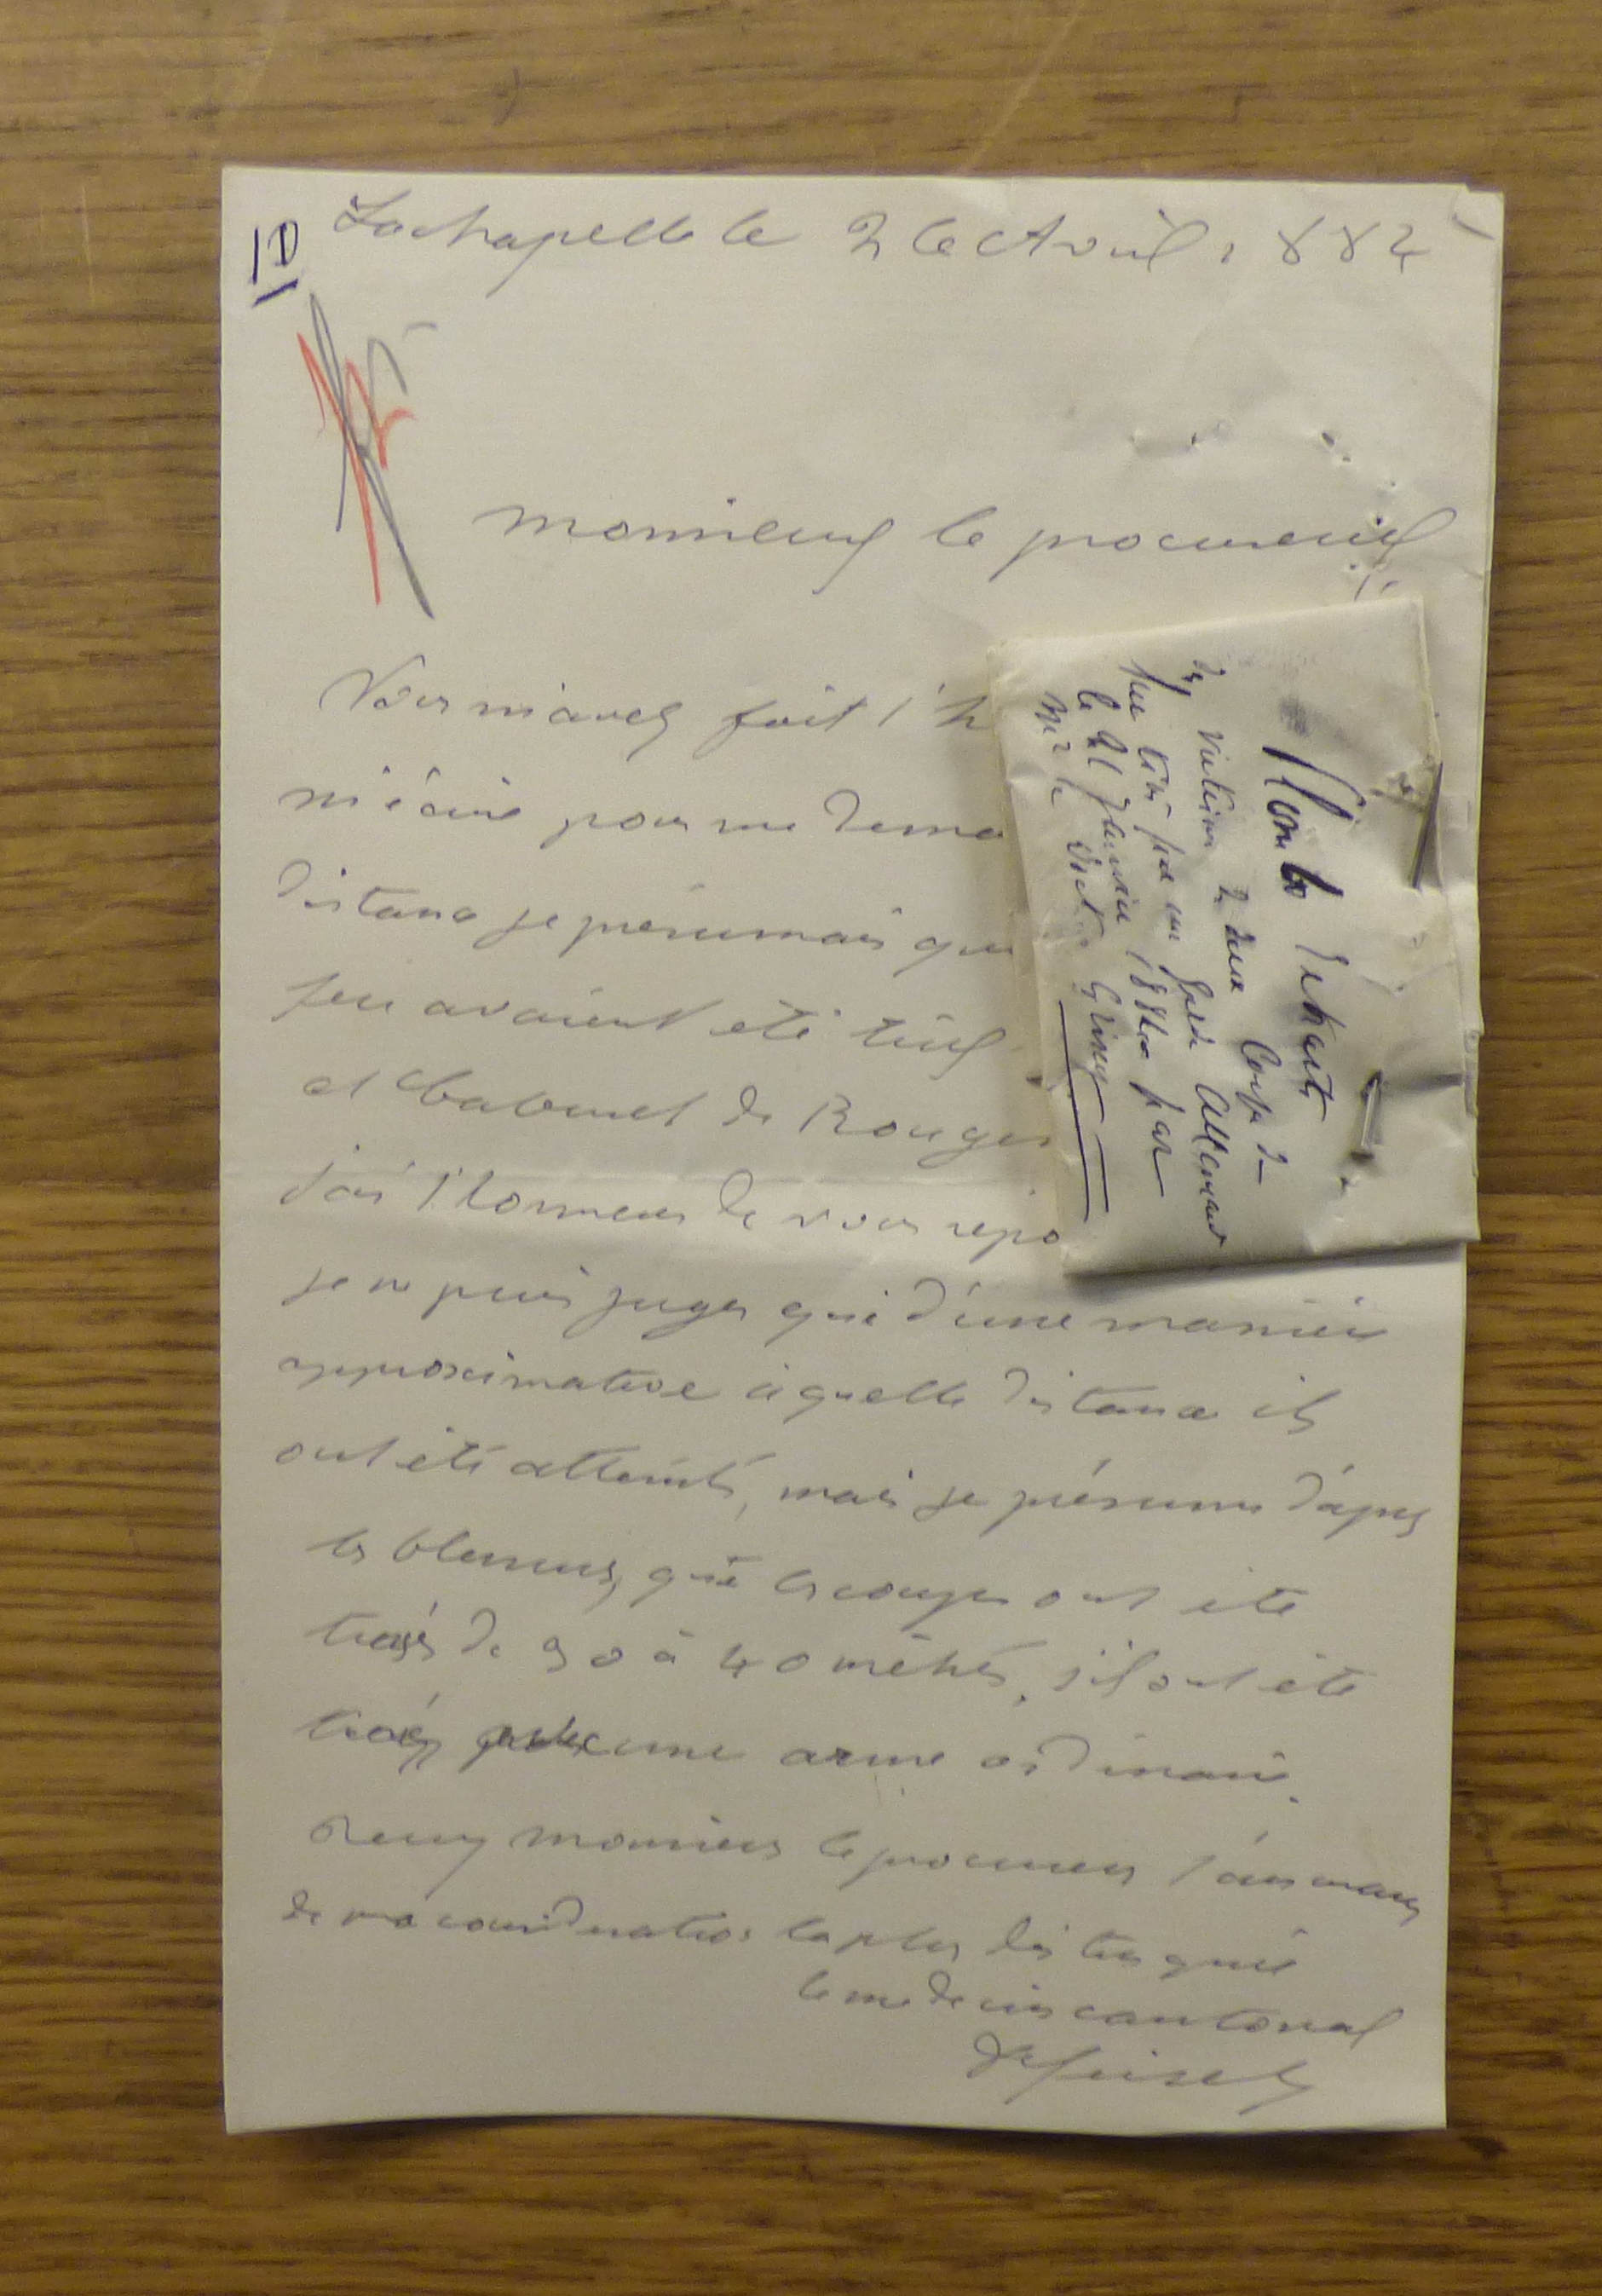 10
Lachapelle le 2 Avril 1882
monsieur le procureur
Vous m'avez fait l'h
m'écrire pour me dema
distance je présumais que
feu avaient été tirés
et Cabinet de Rouge
J'ai l'honneur de vous répo
je ne puis juger que d'une manière
approximative à quelle distance ils
ont été atteints, mais je présume d'après
les blessures, que les coups ont été
tirés de 30 à 40 mètres, s'ils ont été
tirés une arme ordinaire.
monsieur le procureur l'assurance
de ma considération la plus distinguée
le médecin cantonal
Plomb Extrait
victime de deux Coups de
feu tiré par un garde Allemand
le 21 Janvier 188 par
Mr le Victor